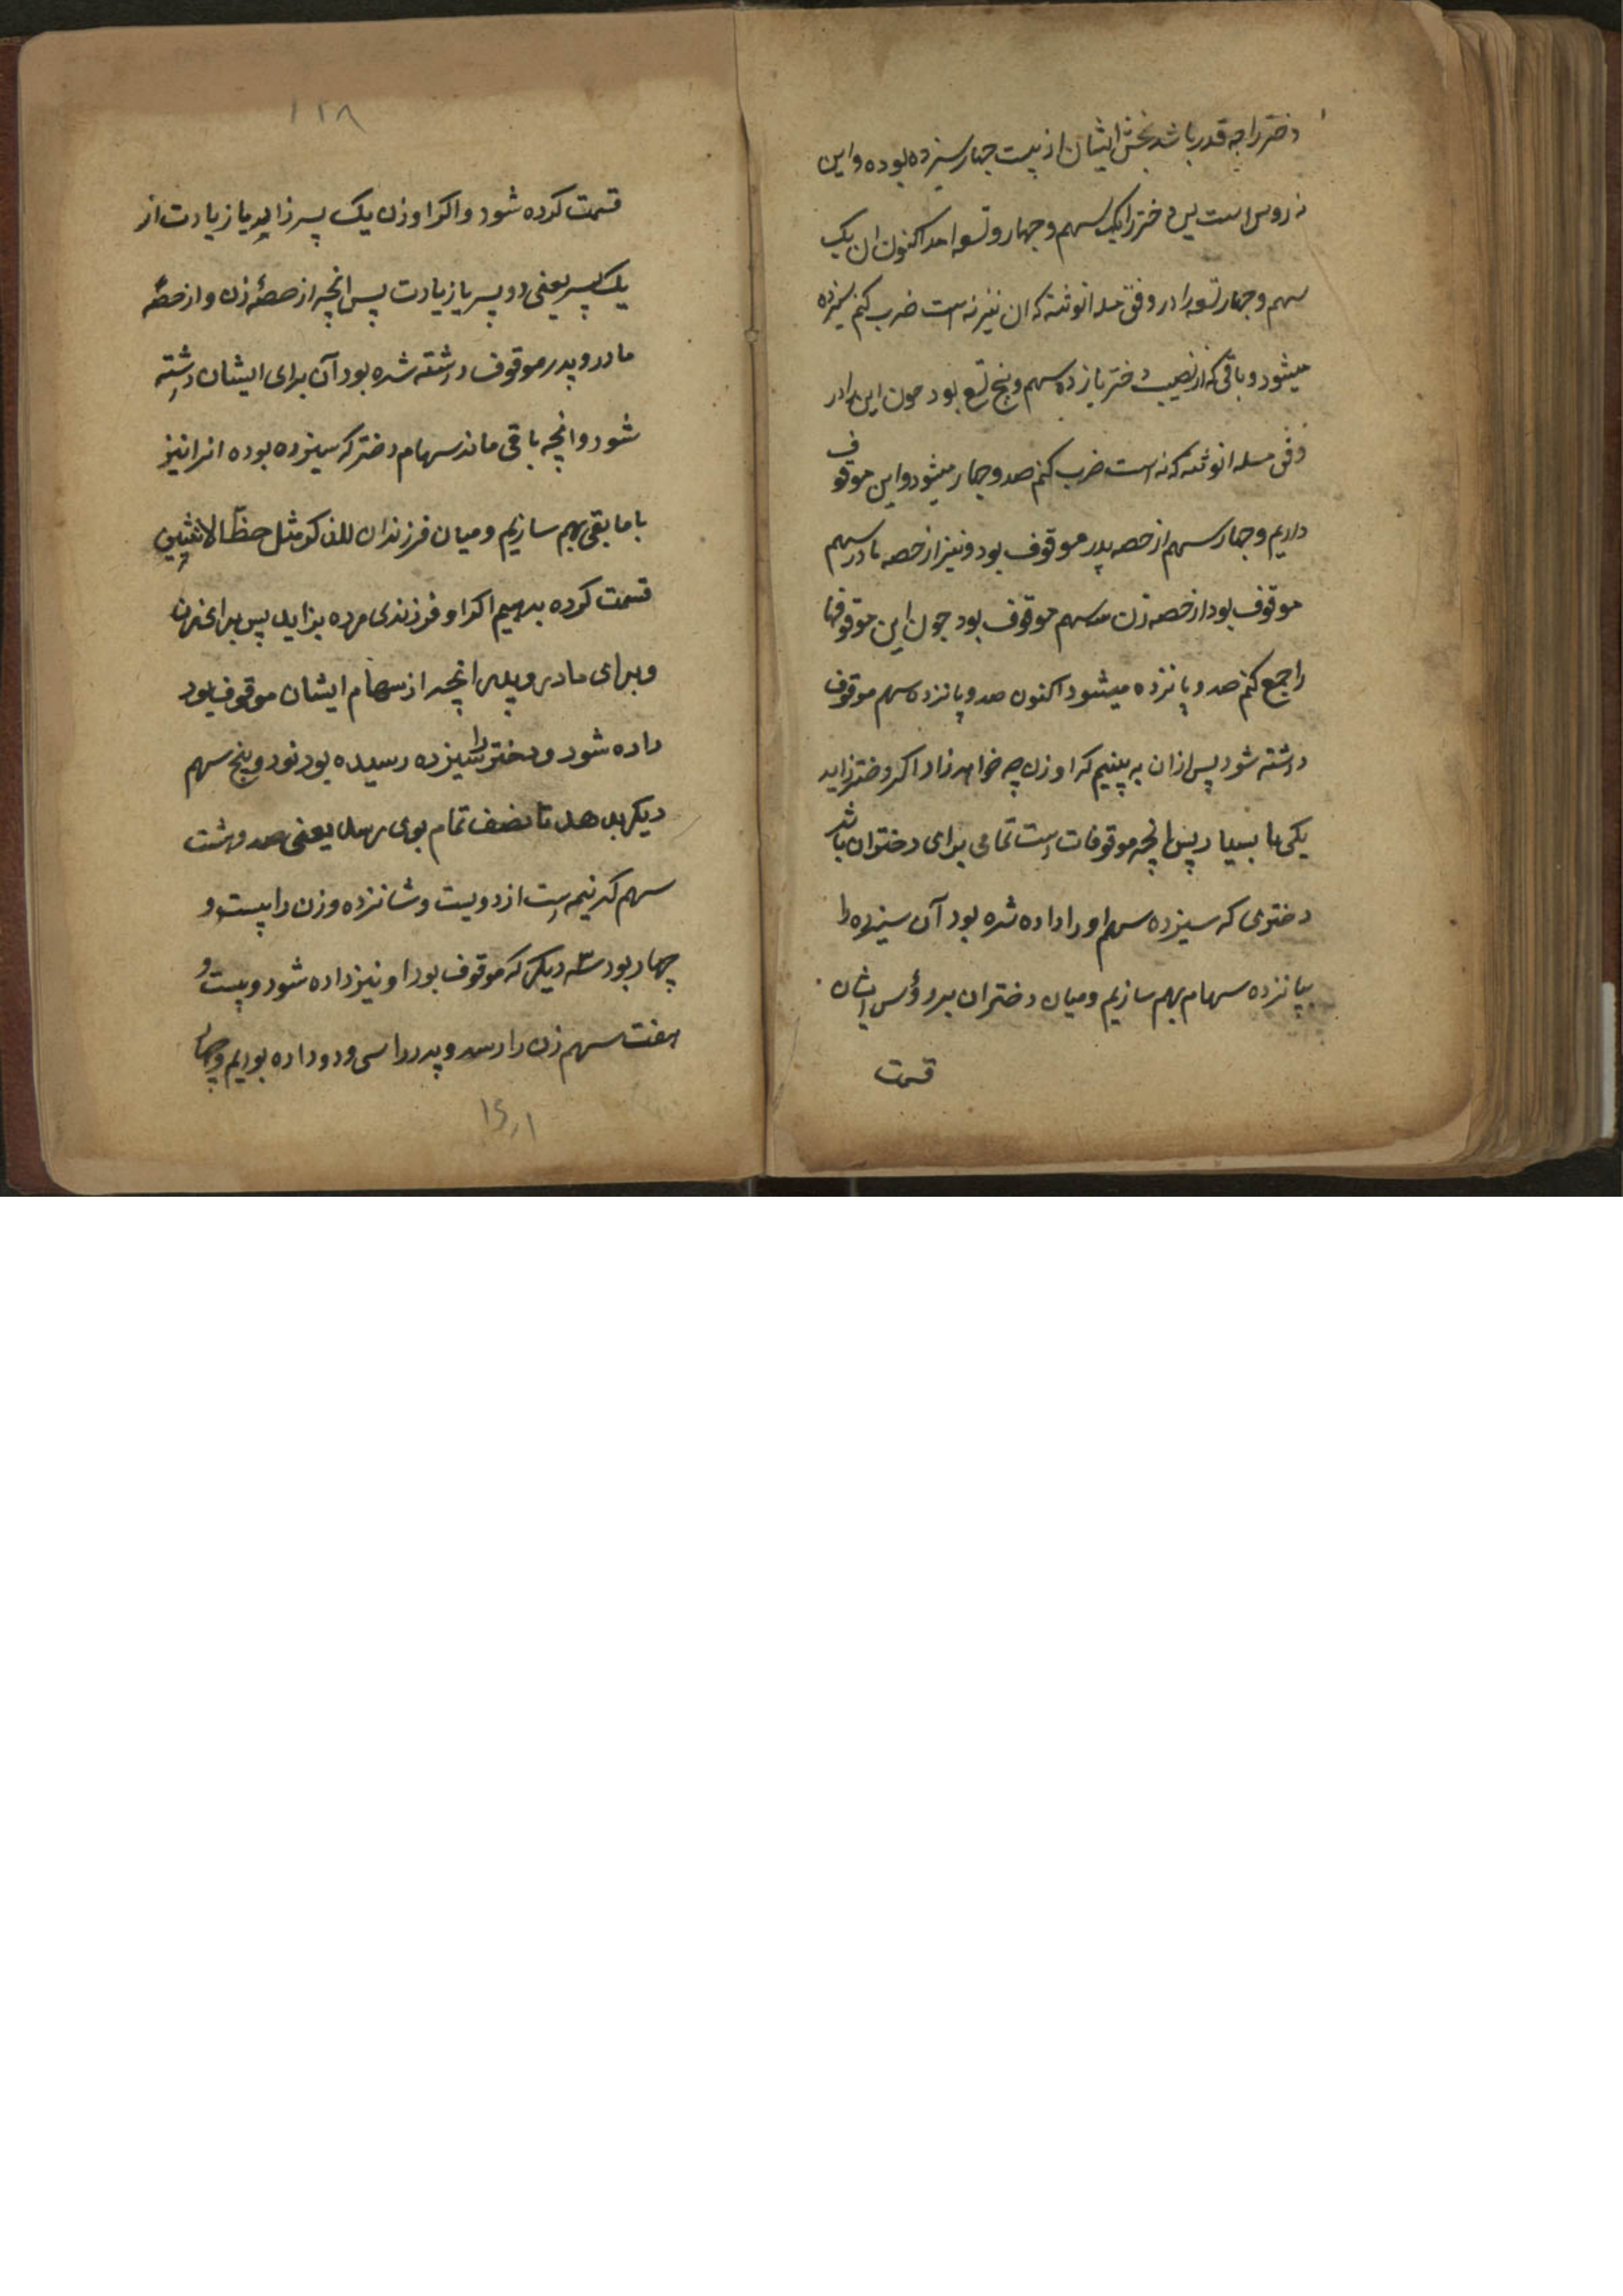 دختر را چه قدر باشد بخش ایشان از بیست چهار سیزده بوده و این
نه روس است پس دختر را یک سهم و چهار و تسعه امد اکنون ان یک
سهم و چهار تسعه را در وفق مسله انوثته که ان نیز نه است ضرب کنم سیزده
میشود و باقی که از نصیب دختر یازده سهم و پنج تسع بود چون این را در
وفق مسله انوثته که نه است ضرب کنم صد و چهار میشود و این موقوف
داریم و چهار سهم از حصه پدر موقوف بود و نیز از حصه مادر سهم
موقوف بود از حصه زن سه سهم موقوف بود چون این موقوفها
را جمع کنم صد و پانزده میشود اکنون صد و پانزده سهم موقوف
داشته شود پس ازان به بینیم که او زن چه خواهد زاد اکر دختر زاید
یکی یا بسیار پس انچه موقوفات است تمامی برای دختران باشد
دختری که سیزده سهم او را داده شده بود آن سیزده را
بپانزده سهام بهم سازیم و میان دختران بر رؤس ایشان
قسمت
۱۲۸
قسمت کرده شود و اکر او زن یک پسر زاید یا زیادت از
یک پسر یعنی دو پسر یا زیادت پس انچه از حصهٔ زن و از حصهٔ
مادر و پدر موقوف داشته شده بود آن برای ایشان داشته
شود و انچه باقی ماند سهام دختر که سیزده بوده انرا نیز
با مابقی بهم سازیم و میان فرزندان للذکر مثل حظّ الانثیین
قسمت کرده بدهیم اکر او فرزندی مرده بزاید پس برای زن
و برای مادر و پدر انچه از سهام ایشان موقوف بود
داده شود و دختر را سیزده رسیده بود نود و پنج سهم
دیکر بدهد تا نصف تمام بوی رسد یعنی صد و هشت
سهم که نیمه است از دویست و شانزده و زن را بیست و
چهار بود سه دیکر که موقوف بود او نیز داده شود و بیست و
هفت سهم زن را رسد و پدر را سی و دو داده بودیم و چهار